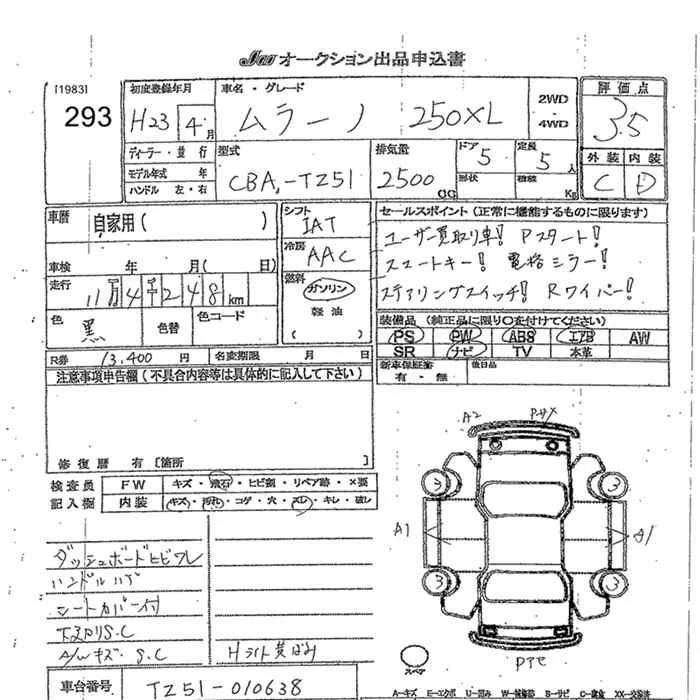 オークション出品申込書
[1983]
293
初度登録年月
H23 4月
車名・グレード
ムラーノ 250XL
2WD
・
4WD
評価点
3.5
外装 内装
C D
ディーラー・並行
モデル年式 年
ハンドル 左・右
型式
CBA-TZ51
排気量
2500 CC
ドア 5
形状
定員 5 人
積載 Kg
車歴 自家用( )
車検 年 月( 日)
走行 11万4千248 km
色 黒 色替 色コード
R券 13,400 円 名変期限 月 日
シフト
IAT
冷房
AAC
燃料
ガソリン
軽油
( )
セールスポイント(正常に機能するものに限ります)
ユーザー買取り車! Pスタート!
スマートキー! 電格ミラー!
ステアリングスイッチ! Rワイパー!
装備品 (純正品に限り○を付けてください)
PS PW ABS エアB AW
SR ナビ TV 本革
新車保証書 後日品
有・無
注意事項申告欄(不具合内容等は具体的に記入して下さい)
修復歴 有 [箇所 ]
検査員 FW キズ・飛石・ヒビ割・リペア跡・×要
記入欄 内装 キズ・汚れ・コゲ・穴・スレ・キレ・破レ
ダッシュボードヒビワレ
ハンドルハゲ
シートカバー付
下廻りS.C
A/Wキズ S.C
Hライト黄ばみ
A2
3 3
A1 A1
3 3
スペア
車台番号 TZ51-010638
A-キズ E-エクボ U-凹み S-サビ